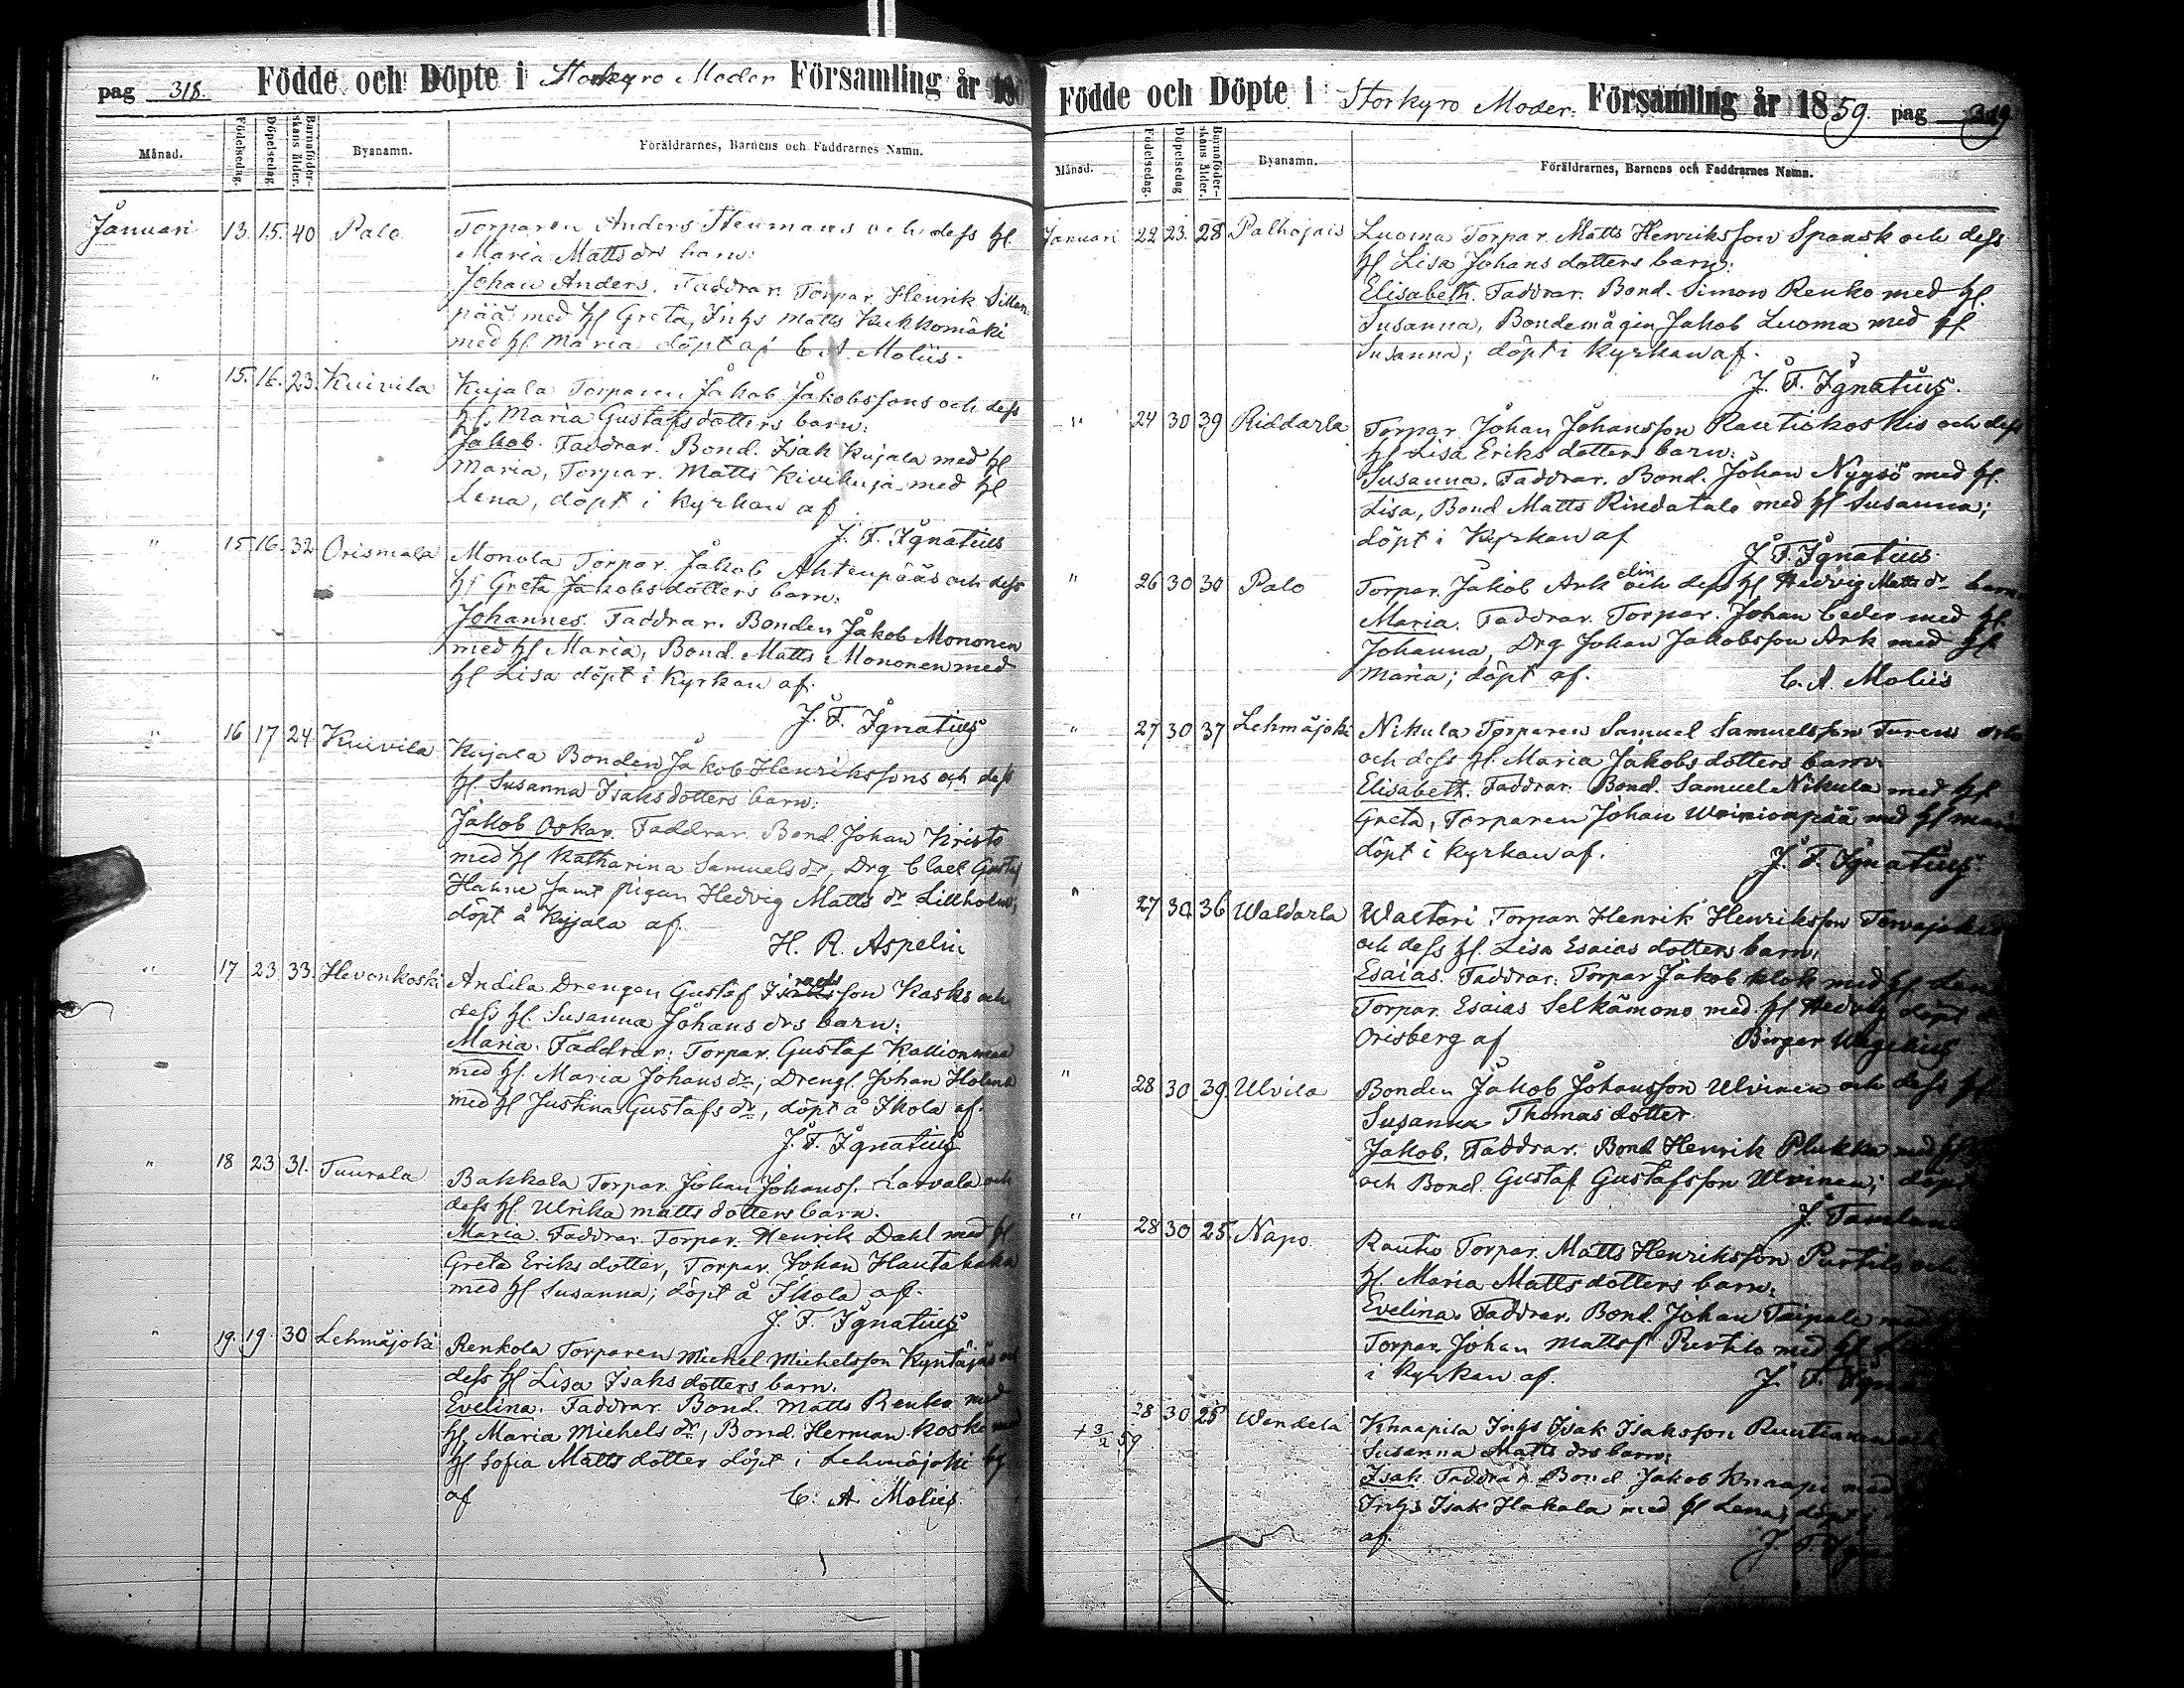 pag 318. Födde och Döpte i Storkyro Moder Församling år 18
Månad. Födelsedag. Döpelsedag. Barnaföderskans ålder. Byanamn. Föräldrarnes, Barnens och Faddrarnes Namn.
Januari 13. 15. 40 Palo. Torparen Anders Stenmans och dess hl.
Maria Mattsdrs barn:
Johan Anders. Faddrar. Torpar. Henrik Sillan-
pää med hl Greta, Inhs Matts Kukkomäki
med hl Maria döpt af C. A. Moliis.
" 15. 16. 23. Kuivila Kujala Torparen Jakob Jakobssons och dess
hl. Maria Gustafsdotters barn:
Jakob. Faddrar. Bond. Isak Kujala med hl
Maria, Torpar. Matts Kivikuja med hl
Lena, döpt i Kyrkan af
J. F. Ignatius
" 15 16. 32 Orismala Monola Torpar. Jakob Ahtenpääs och dess
hl Greta Jakobsdotters barn:
Johannes. Faddrar. Bonden Jakob Mononen
med hl Maria, Bond. Matts Mononen med
hl Lisa döpt i Kyrkan af.
J. F. Ignatius
" 16 17 24 Kuivila Kujala Bonden Jakob Henrikssons och dess
hl. Susanna Isaksdotters barn:
Jakob Oskar. Faddrar. Bond. Johan Kristo
med hl Katharina Samuelsdr, Drg Clael Gustaf
Hahne samt pigan Hedvig Mattsdr Lillholm;
döpt å Kujala af.
H. R. Aspelin
" 17 23 33. Hevonkoski Andila Drengen Gustaf son Kasks och
dess hl. Susanna Johansdrs barn:
Maria. Faddrar: Torpar. Gustaf Kallionmaa
med hl. Maria Johansdr; Drengf. Johan Holma
med hl Justina Gustafsdr, döpt å Ikola af.
J. F. Ignatius
" 18 23 31. Tuurala Bakkala Torpar. Johan Johanss. Larvala och
dess hl. Ulrika Mattsdotters barn.
Maria. Faddrar. Torpar. Henrik Dahl med hl
Greta Eriksdotter, Torpar. Johan Hautahaka
med hl Susanna; döpt å Ikola af.
J. F. Ignatius
" 19. 19. 30 Lehmäjoki Renkola Torparen Mickel Mickelsson Kyntäjäs och
dess hl Lisa Isaksdotters barn.
Evelina. Faddrar. Bond. Matts Renko med
hl. Maria Michelsdr, Bond. Herman Koski med
hl Sofia Mattsdotter döpt i Lehmäjoki by
af C. A. Moliis.
Födde och Döpte i Storkyro Moder. Församling år 1859. pag 319
Månad. Födelsedag. Döpelsedag Barnaföderskans ålder. Byanamn. Föräldrarnes, Barnens och Faddrarnes Namn.
Januari 22 23. 28 Palhojais Luoma Torpar. Matts Henriksson Spansk och dess
hl Lisa Johansdotters barn:
Elisabeth. Faddrar. Bond. Simon Renko med hl.
Susanna, Bondemågen Jakob Luoma med hl
Susanna; döpt i Kyrkan af.
J. F. Ignatius.
" 24 30 39 Riddarla Torpar. Johan Johansson Rautiokoskis och dess
hl Lisa Eriksdotters barn:
Susanna. Faddrar. Bond. Johan Nygsö med hl.
Lisa, Bond Matts Rindatalo med hl Susanna;
döpt i Kyrkan af
J. F. Ignatius
" 26 30 30 Palo Torpar. Jakob Ark elin och dess hl. Hedvig Mattsdr barn
Maria. Faddrar. Torpar. Johan Ceder med hl.
Johanna, Drg Johan Jakobsson Ark med hl
Maria; döpt af. C. A. Moliis
" 27 30 37 Lehmäjoki Nikula Torparen Samuel Samuelsson Turen och
och dess hl. Maria Jakobsdotters barn.
Elisabeth. Faddrar. Bond. Samuel Nikula med hl.
Greta, Torparen Johan Wainionpää med hl Maria
döpt i kyrkan af. J. F. Ignatius.
" 27 30 36 Waldarla Waltari Torpar. Henrik Henriksson Tervajokis
och dess hl. Lisa Esaiasdotters barn.
Esaias. Faddrar: Torpar Jakob Klok med hl Lena
Torpar. Esaias Selkämono med hl Hedvig döpt å
Orisberg af Birger Wegelius
" 28 30 39. Ulvila Bonden Jakob Johansson Ulvinen och dess hl
Susanna Thomasdotter
Jakob. Faddrar. Bond Henrik Plukka med hl
och Bond. Gustaf Gustafsson Ulvinen; döpt
J.
" 28 30 25. Napo. Rauto Torpar. Matts Henriksson Purtilo och
hl. Maria Mattsdotters barn:
Evelina. Faddrar. Bond. Johan Taipale med
Torpar Johan Mattss Purtilo med hl
i Kyrkan af. J. F. Ign
+ 3/2 59 28 30 25 Wendelä Knaapila Inhs Isak Isaksson Ruutiana och
Susanna Mattsdrs barn:
Isak. Faddrar. Bond Jakob Knaapi med
Inhs Isak Hakala med hl Lena; döpt i
af. J. F. Ign